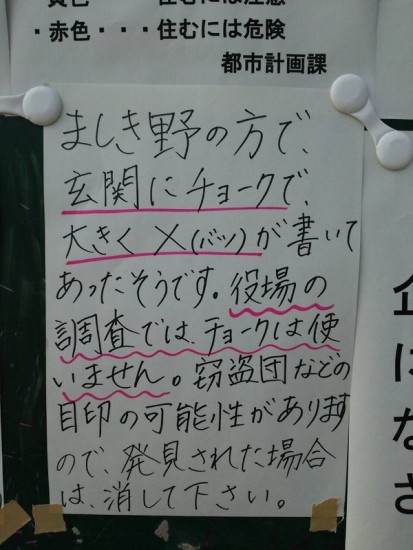 ・赤色・・・住むには危険
都市計画課
ましき野の方で、
玄関にチョークで、
大きく×(バツ)が書いて
あったそうです。役場の
調査では、チョークは使
いません。窃盗団などの
目印の可能性があります
ので、発見された場合
は、消して下さい。
になさ